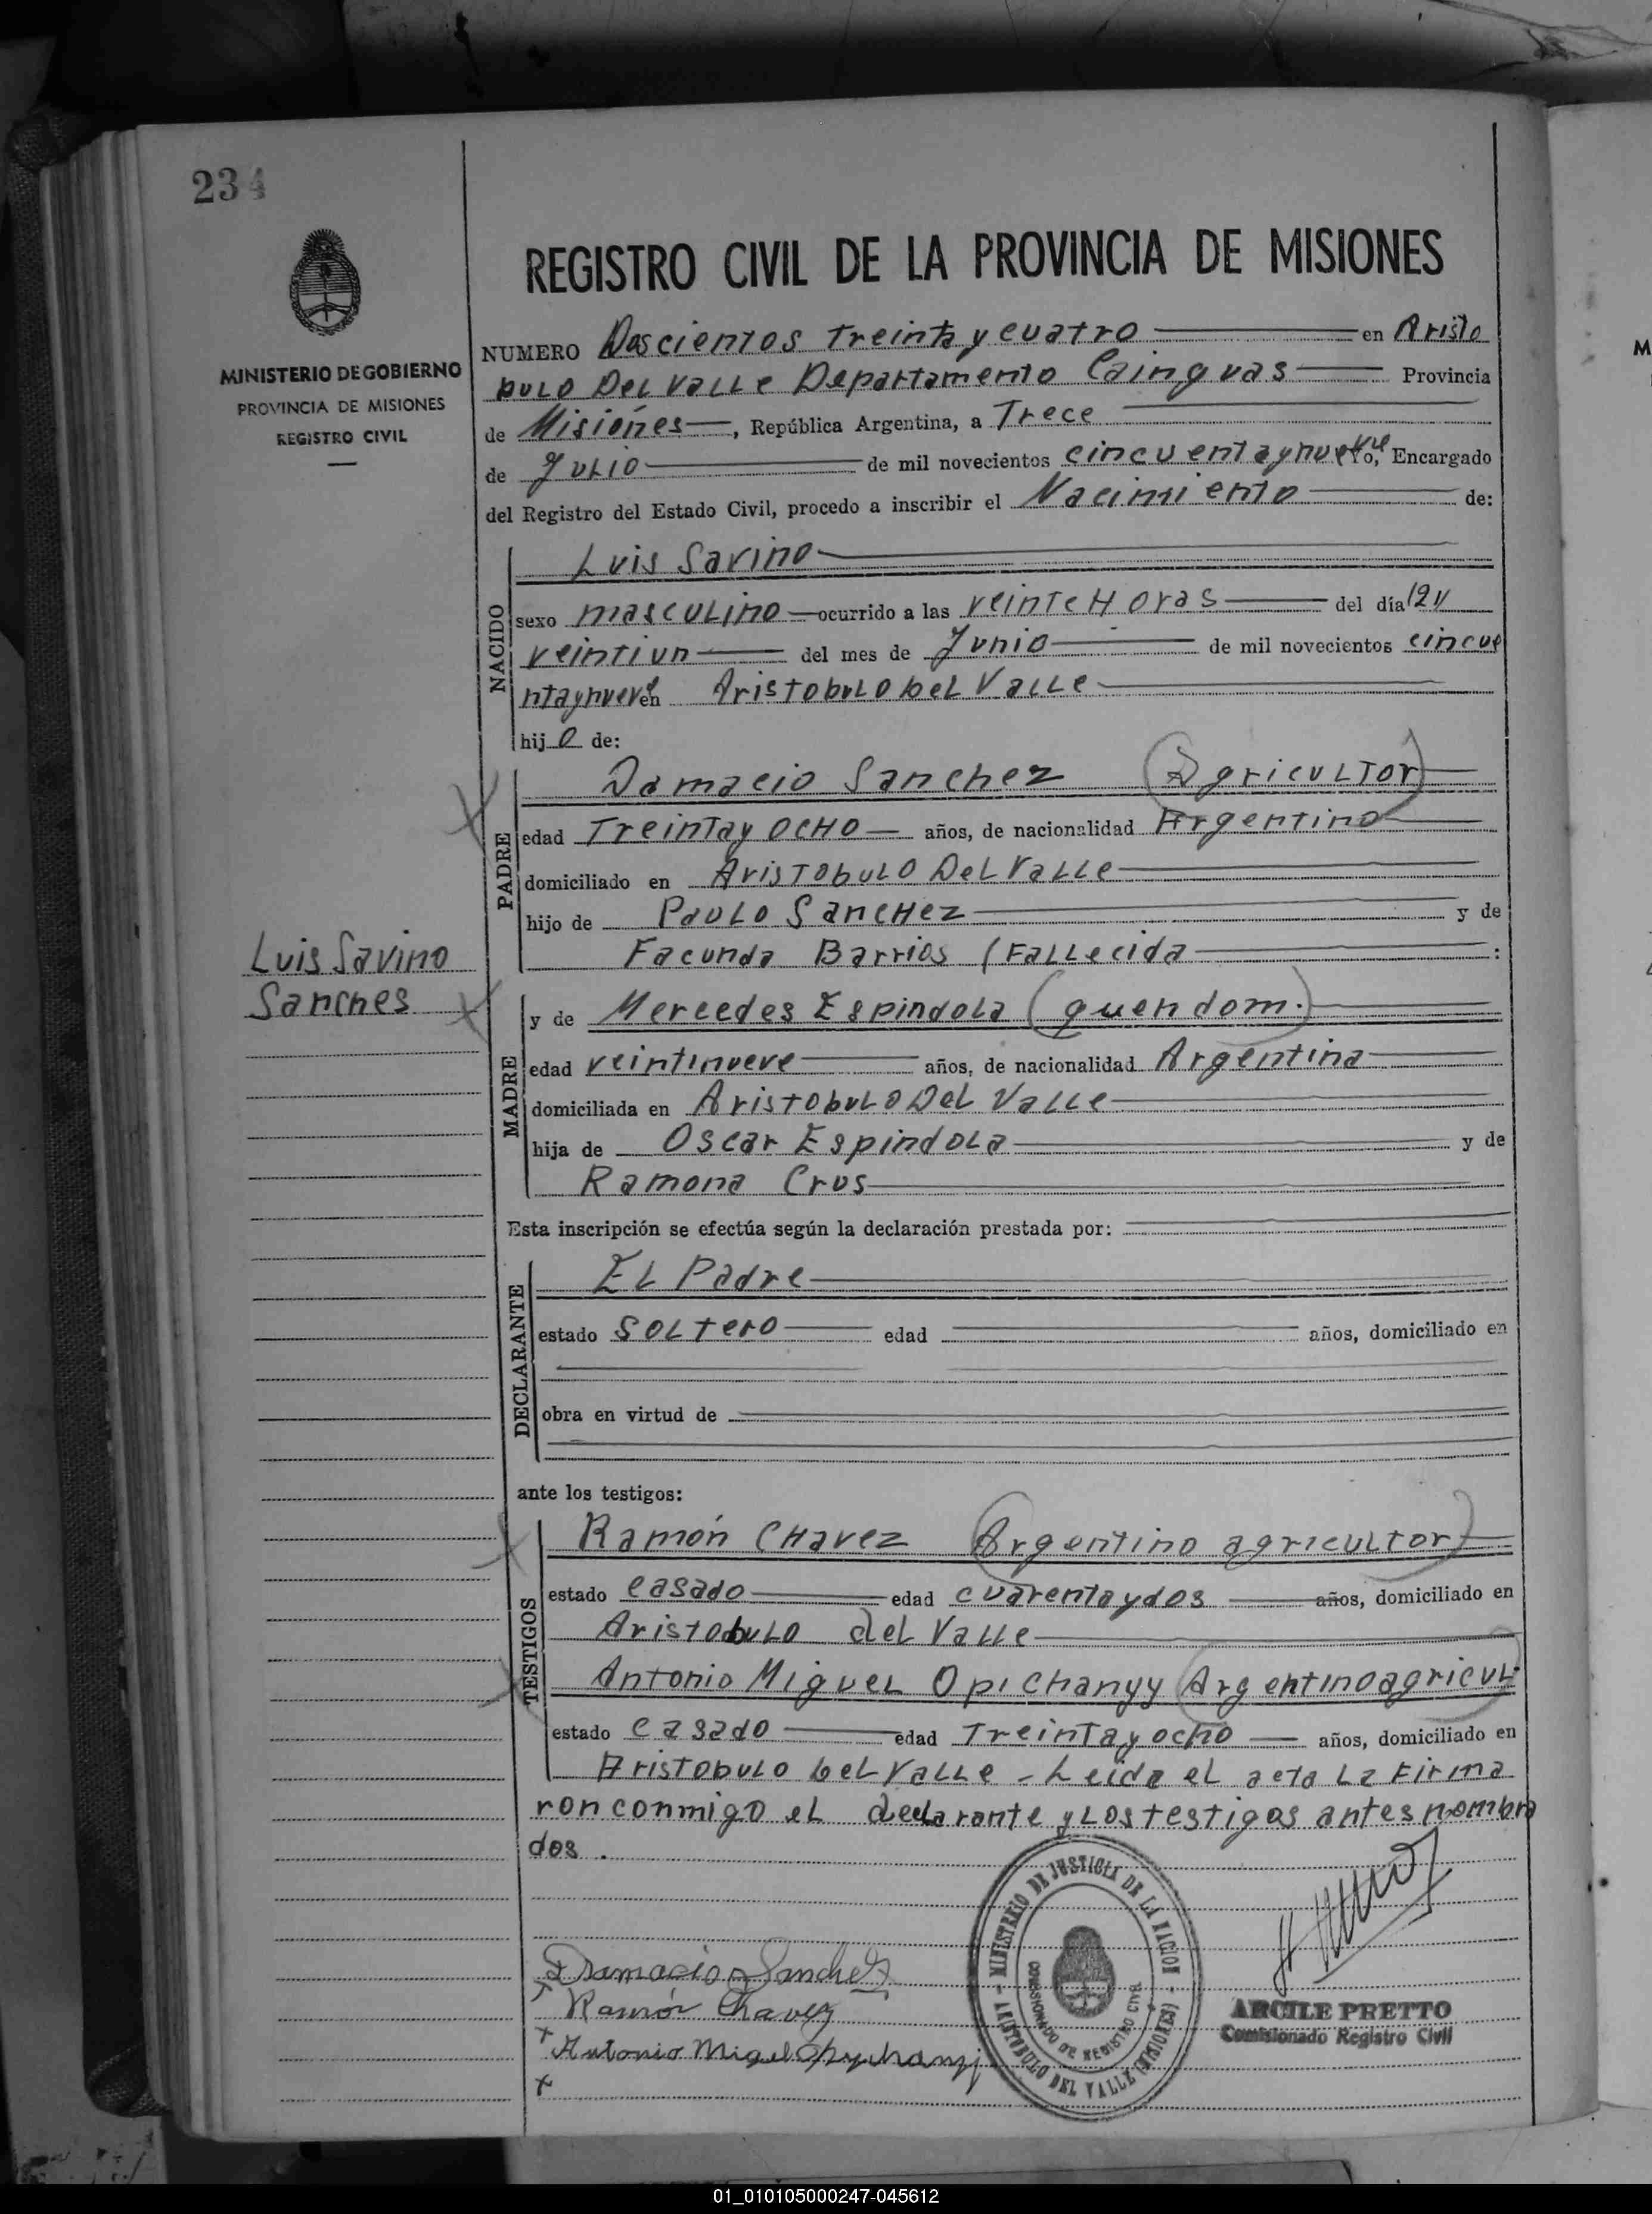 234
MINISTERIO DE GOBIERNO
PROVINCIA DE MISIONES
REGISTRO CIVIL
REGISTRO CIVIL DE LA PROVINCIA DE MISIONES
NUMERO Doscientos Treinta y cuatro en Aristo
bulo Del Valle Departamento Cainguas Provincia
de Misiones, República Argentina, a Trece
de Julio de mil novecientos cincuentaynueve yo, Encargado
del Registro del Estado Civil, procedo a inscribir el Nacimiento de:
NACIDO
Luis Savino
sexo masculino ocurrido a las veinte Horas del día 21
veintiun del mes de Junio de mil novecientos cincue
ntaynueve en Aristobulo del Valle
hijo de:
PADRE
Damacio Sanchez (Agricultor)
edad Treintay ocho años, de nacionalidad Argentino
domiciliado en Aristobulo Del Valle
hijo de Paulo Sanchez y de
Facunda Barrios (Fallecida :
Luis Savino
Sanches
MADRE
y de Mercedes Espindola (quen dom.)
edad veintinueve años, de nacionalidad Argentina
domiciliada en Aristobulo Del Valle
hija de Oscar Espindola y de
Ramona Crus
Esta inscripción se efectúa según la declaración prestada por:
DECLARANTE
El Padre
estado soltero edad años, domiciliado en
obra en virtud de
ante los testigos:
TESTIGOS
Ramón Chavez (Argentino agricultor)
estado casado edad cuarentaydos años, domiciliado en
Aristobulo del Valle
Antonio Miguel Opichanyy (Argentino agricul
estado casado edad Treintay ocho años, domiciliado en
Aristobulo del Valle - Leida el acta La Firma
ron conmigo el declarante y Los testigos antes nombra
dos.
Damacio Sanchez
Ramón Chavez
Antonio Miguel Opychanyj
MINISTERIO DE JUSTICIA DE LA NACION
COMISIONADO DE REGISTRO CIVIL
ARISTOBULO DEL VALLE (MISIONES)
ARCILE PRETTO
Comisionado Registro Civil
01_010105000247-045612